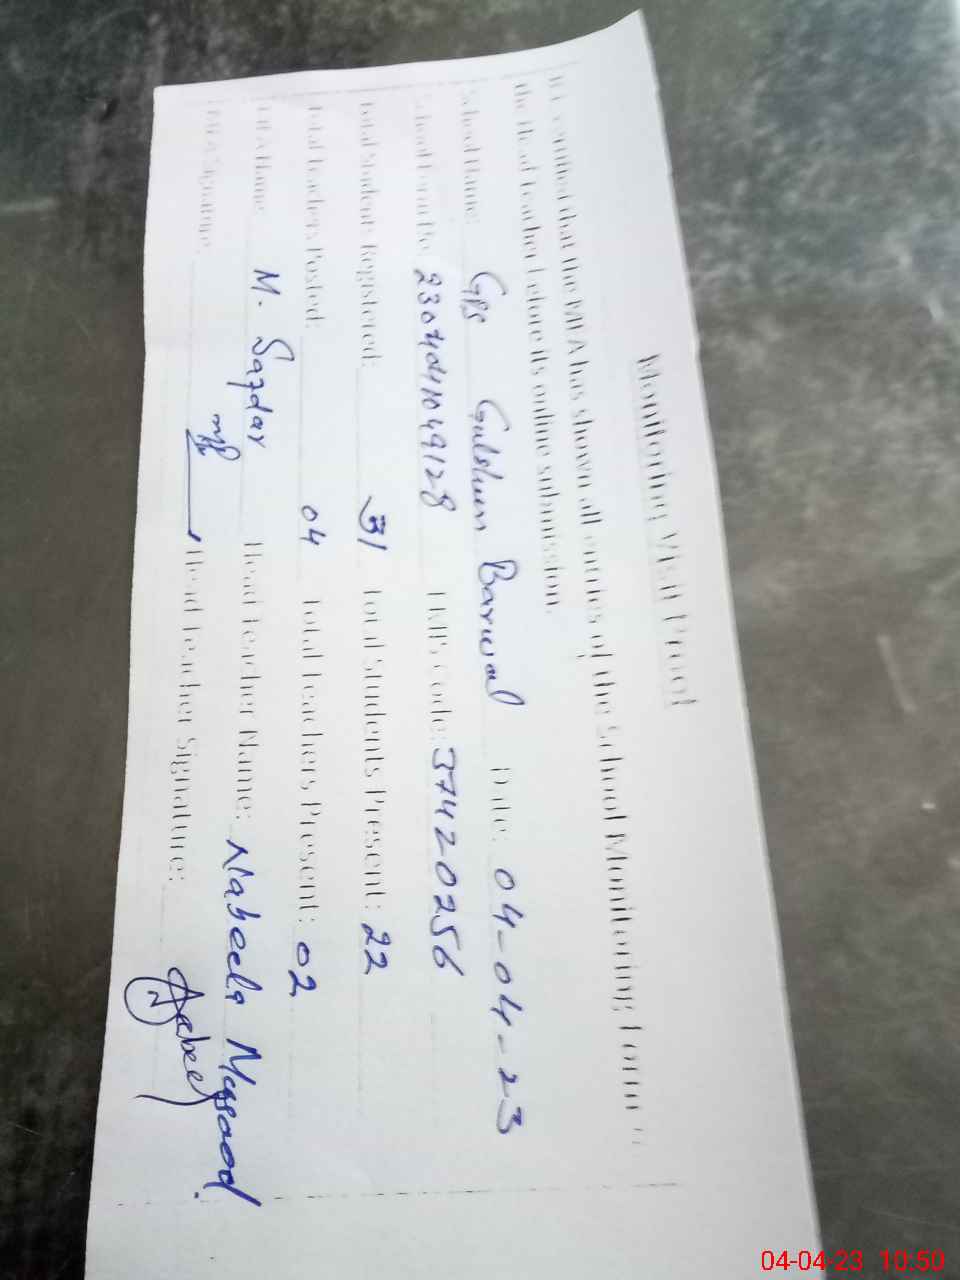 Monitoring Visit Proof
It is certified that the MEA has shown all entries of the School Monitoring Form to
the Head Teacher before its online submission.
School Name: GPS Gulshun Barwal Date: 04-04-23
School Form No. EMIS Code: 37420256
Total Students Registered: 31 Total Students Present: 22
Total Teachers Posted: 04 Total Teachers Present: 02
MEA Name: M. Sazdar Head Teacher Name: Nabeela Masood.
MEA Signature: Head Teacher Signature: Nabeela
04-04-23 10:50